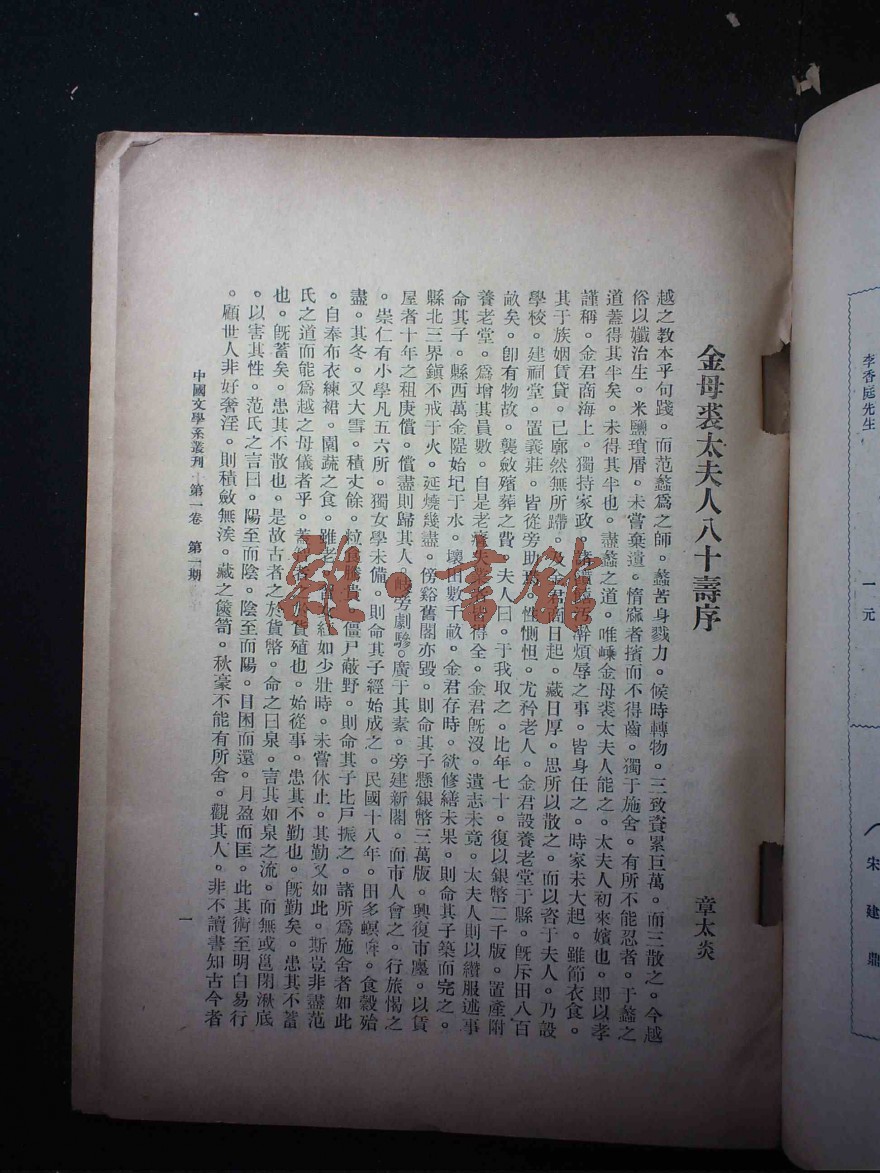 金母裘太夫人八十壽序
章太炎
越之教本乎句踐。而范蠡爲之師。蠡苦身戮力。候時轉物。三致貲累巨萬。而三散之。今越
俗以孅治生。米鹽瑣屑。未嘗棄遺。惰窳者擯而不得齒。獨于施舍。有所不能忍者。于蠡之
道蓋得其半矣。未得其半也。盡蠡之道。唯嵊金母裘太夫人能之。太夫人初來嬪也。即以孝
謹稱。金君商海上。獨持家政。諸澣煩辱之事。皆身任之。時家未大起。雖節衣食。
其于族姻賃貸。已廓然無所蹛。及金君商日起。藏日厚。思所以散之。而以咨于夫人。乃設
學校。建祠堂。置義莊。皆從旁助焉。性惻怛。尤矜老人。金君設養老堂于縣。既斥田八百
畝矣。卽有物故。襲斂殯葬之費。夫人曰。于我取之。比年七十。復以銀幣二千版。置產附
養老堂。爲增其員數。自是老癃失養者皆得全。金君旣沒。遺志未竟。太夫人則以纘服述事
命其子。縣西萬金隄始圮于水。壞田數千畝。金君存時。欲修繕未果。則命其子築而完之。
縣北三界鎭不戒于火。延燒幾盡。傍谿舊閣亦毀。則命其子懸銀幣三萬版。興復市廛。以賃
屋者十年之租庚償。償盡則歸其人。岐旁劇驂。廣于其素。旁建新閣。而市人會之。行旅愒之
。崇仁有小學凡五六所。獨女學未備。則命其子經始成之。民國十八年。田多螟。食穀殆
盡。其冬。又大雪。積丈餘。粒食騰貴。僵尸蔽野。則命其子比戶振之。諸所爲施舍者如此
。自奉布衣練裙。園蔬之食。雖老。經如少壯時。未嘗休止。其勤又如此。斯豈非盡范
氏之道而能爲越之母儀者乎。蓋古者之於貨殖也。始從事。患其不勤也。旣勤矣。患其不蓄
也。旣蓄矣。患其不散也。是故古者之於貨幣。命之曰泉。言其如泉之流。而無或邕閉湫底
。以害其性。范氏之言曰。陽至而陰。陰至而陽。日困而還。月盈而匡。此其術至明白易行
。顧世人非好奢淫。則積斂無涘。藏之篋笥。秋豪不能有所舍。觀其人。非不讀書知古今者
中國文學系叢刊 第一卷 第一期
一
李香庭先生
一元
宋建